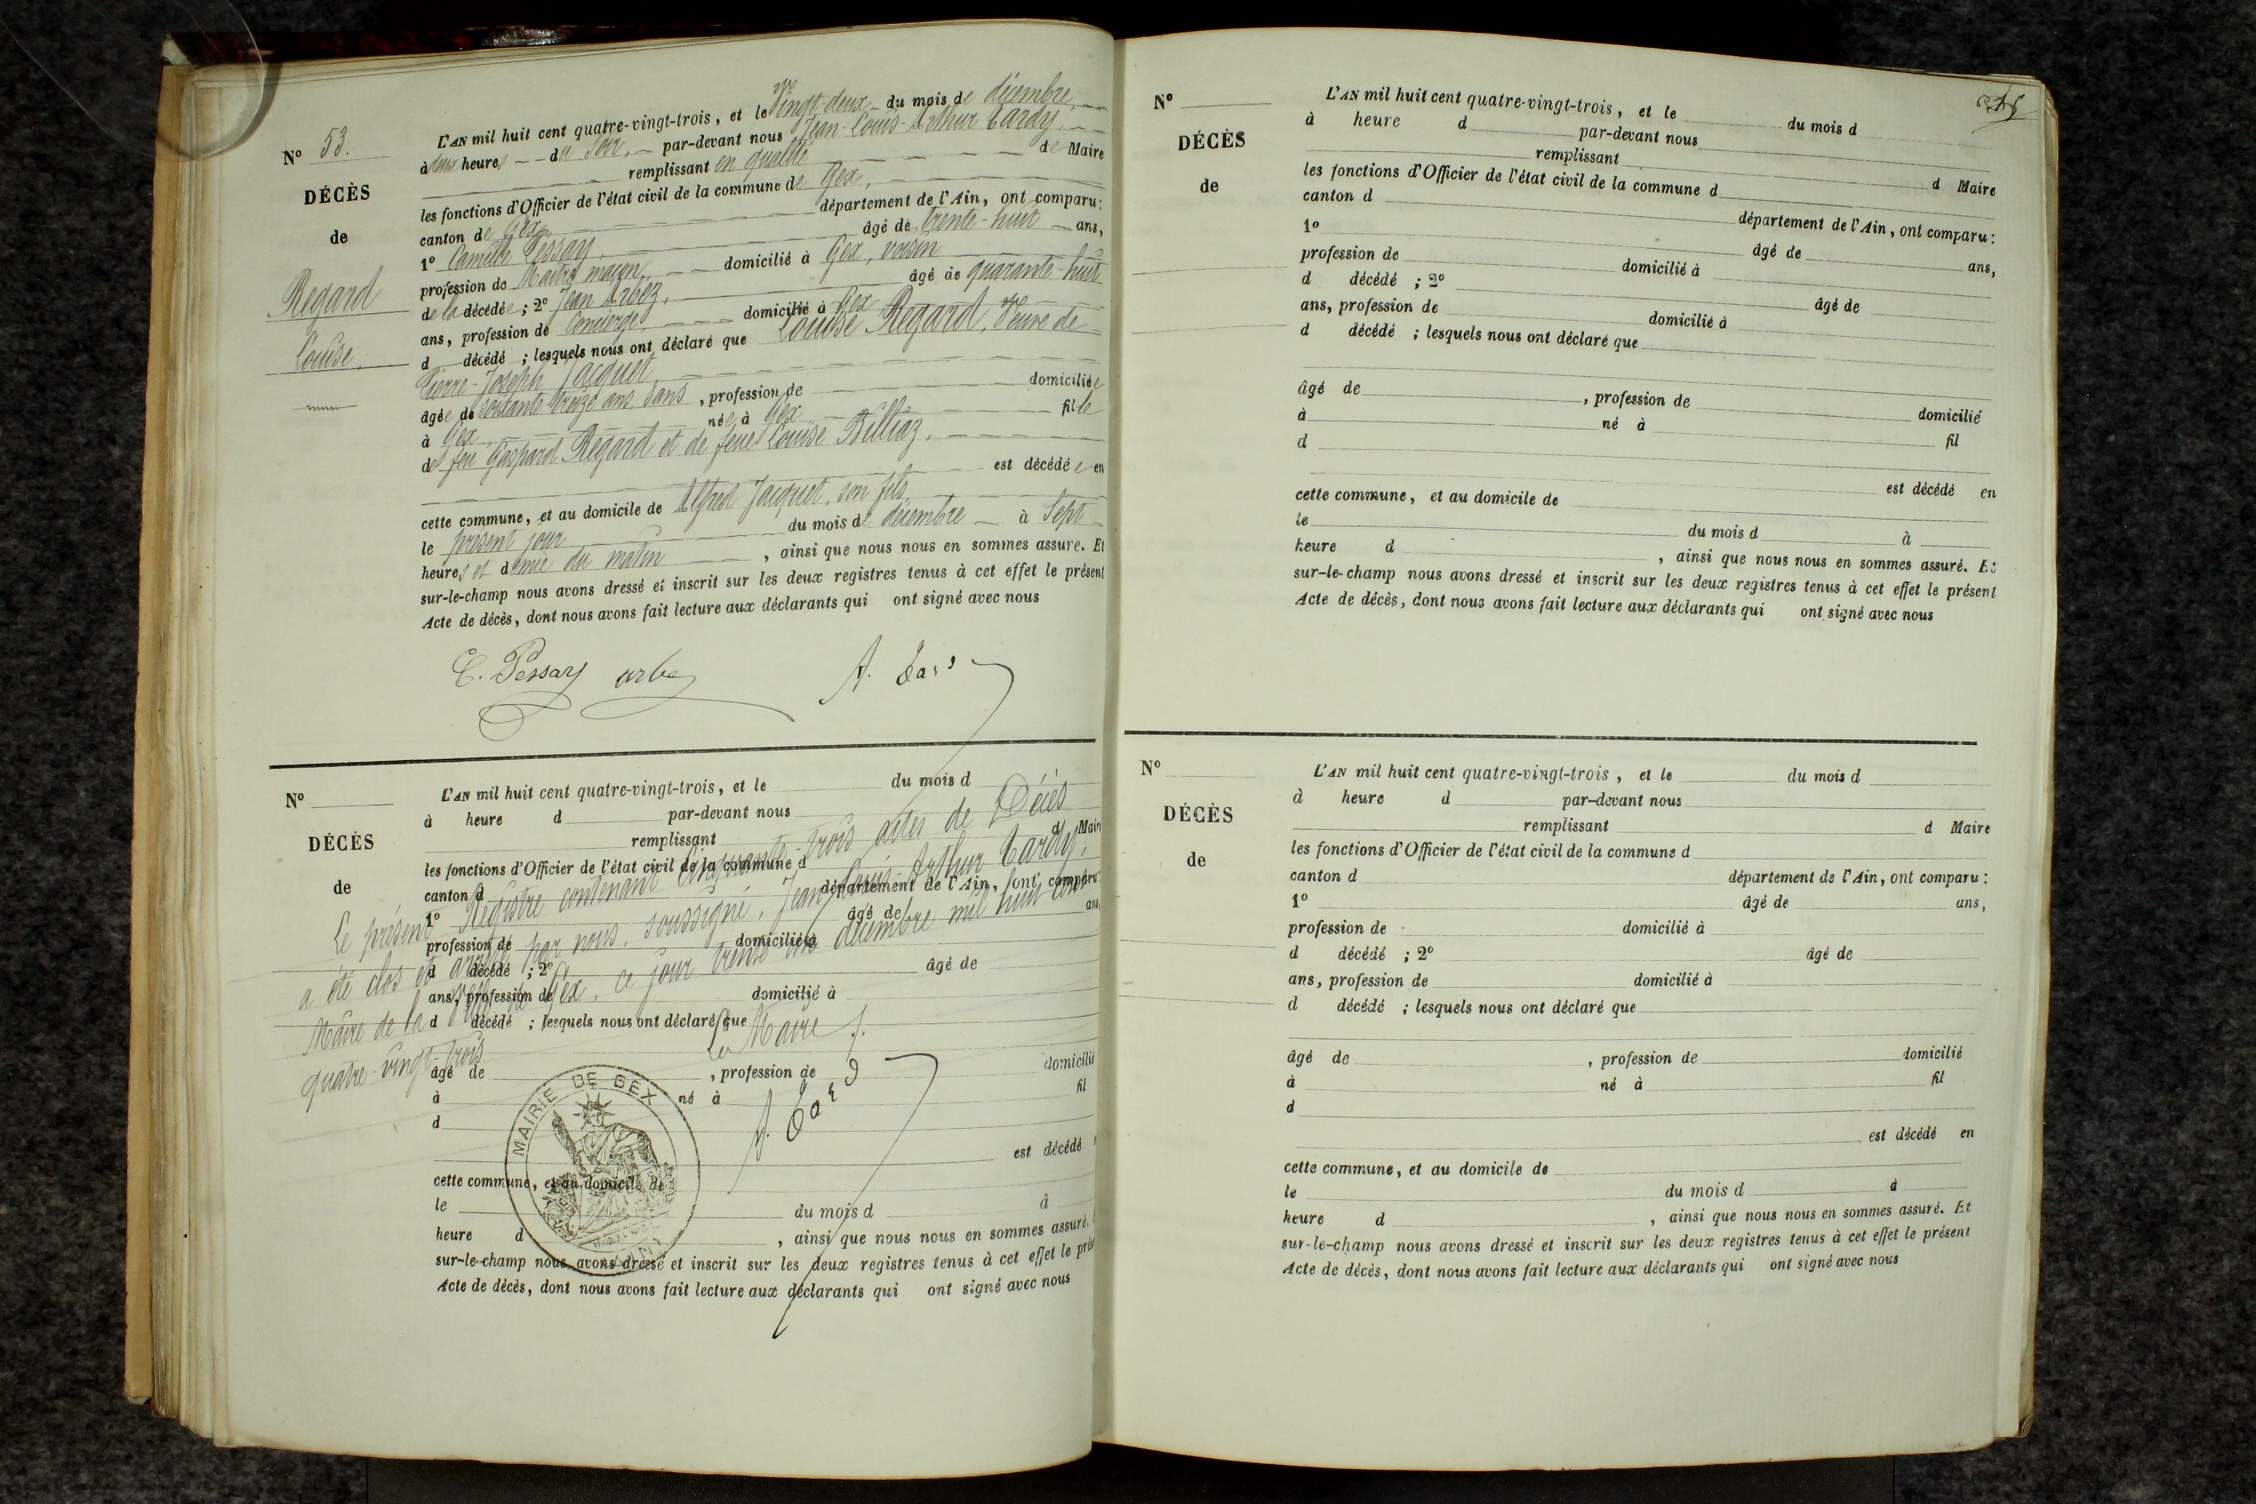 N° 53.
DÉCÈS
de
Regard
Louise.
L'AN mil huit cent quatre-vingt-trois, et le Vingt-deux du mois de décembre,
à deux heures du soir, par-devant nous Jean-Louis-Arthur Tardy,
remplissant en qualité de Maire
les fonctions d'Officier de l'état civil de la commune de Gex,
canton de Gex, département de l'Ain, ont comparu:
1° Camille Pessay, âgé de trente-huit ans,
profession de Maître maçon, domicilié à Gex, voisin
de la décédée; 2° Jean Arbez, âgé de quarante-huit
ans, profession de Concierge domicilié à Gex
d décédé; lesquels nous ont déclaré que Louise Regard, Veuve de
Pierre-Joseph Jacquet
âgée de soixante treize ans, sans, profession de domiciliée
à Gex, née à Gex fille
de feu Gaspard Regard et de feue Louise Billiaz,
est décédée en
cette commune, et au domicile de Alfred Jacquet, son fils
le présent jour du mois de décembre à Sept
heures et demie du matin, ainsi que nous nous en sommes assuré. Et
sur-le-champ nous avons dressé et inscrit sur les deux registres tenus à cet effet le présent
Acte de décès, dont nous avons fait lecture aux déclarants qui ont signé avec nous
C. Pessay arbez A. Tardy
N°
DÉCÈS
de
L'AN mil huit cent quatre-vingt-trois, et le du mois d
à heure d par-devant nous
remplissant d Maire
les fonctions d'Officier de l'état civil de la commune d
canton d département de l'Ain, ont comparu:
1° âgé de ans,
profession de domicilié à
d décédé; 2° âgé de
ans, profession de domicilié à
d décédé; lesquels nous ont déclaré que
âgé de, profession de domicilié
à né à fil
d
est décédé
cette commune, et au domicile de
le du mois d à
heure d, ainsi que nous nous en sommes assuré.
sur-le-champ nous avons dressé et inscrit sur les deux registres tenus à cet effet le prése
Acte de décès, dont nous avons fait lecture aux déclarants qui ont signé avec nous
Le présent Registre contenant Cinquante-trois actes de Décès
a été clos et arrêté par nous, soussigné, Jean-Louis-Arthur Tardy,
Maire de la ville de Gex, ce jour trente un décembre mil huit cent
quatre-vingt-trois
Le Maire
A. Tardy
MAIRIE DE GEX
(AIN)
N°
DÉCÈS
de
L'AN mil huit cent quatre-vingt-trois, et le du mois d
à heure d par-devant nous
remplissant d Maire
les fonctions d'Officier de l'état civil de la commune d
canton d département de l'Ain, ont comparu:
1° âgé de ans,
profession de domicilié à
d décédé; 2° âgé de
ans, profession de domicilié à
d décédé; lesquels nous ont déclaré que
âgé de, profession de domicilié
à né à fil
d
est décédé en
cette commune, et au domicile de
le du mois d à
heure d, ainsi que nous nous en sommes assuré. Et
sur-le-champ nous avons dressé et inscrit sur les deux registres tenus à cet effet le présent
Acte de décès, dont nous avons fait lecture aux déclarants qui ont signé avec nous
N°
DÉCÈS
de
L'AN mil huit cent quatre-vingt-trois, et le du mois d
à heure d par-devant nous
remplissant d Maire
les fonctions d'Officier de l'état civil de la commune d
canton d département de l'Ain, ont comparu:
1° âgé de ans,
profession de domicilié à
d décédé; 2° âgé de
ans, profession de domicilié à
d décédé; lesquels nous ont déclaré que
âgé de, profession de domicilié
à né à fil
d
est décédé en
cette commune, et au domicile de
le du mois d à
heure d, ainsi que nous nous en sommes assuré. Et
sur-le-champ nous avons dressé et inscrit sur les deux registres tenus à cet effet le présent
Acte de décès, dont nous avons fait lecture aux déclarants qui ont signé avec nous